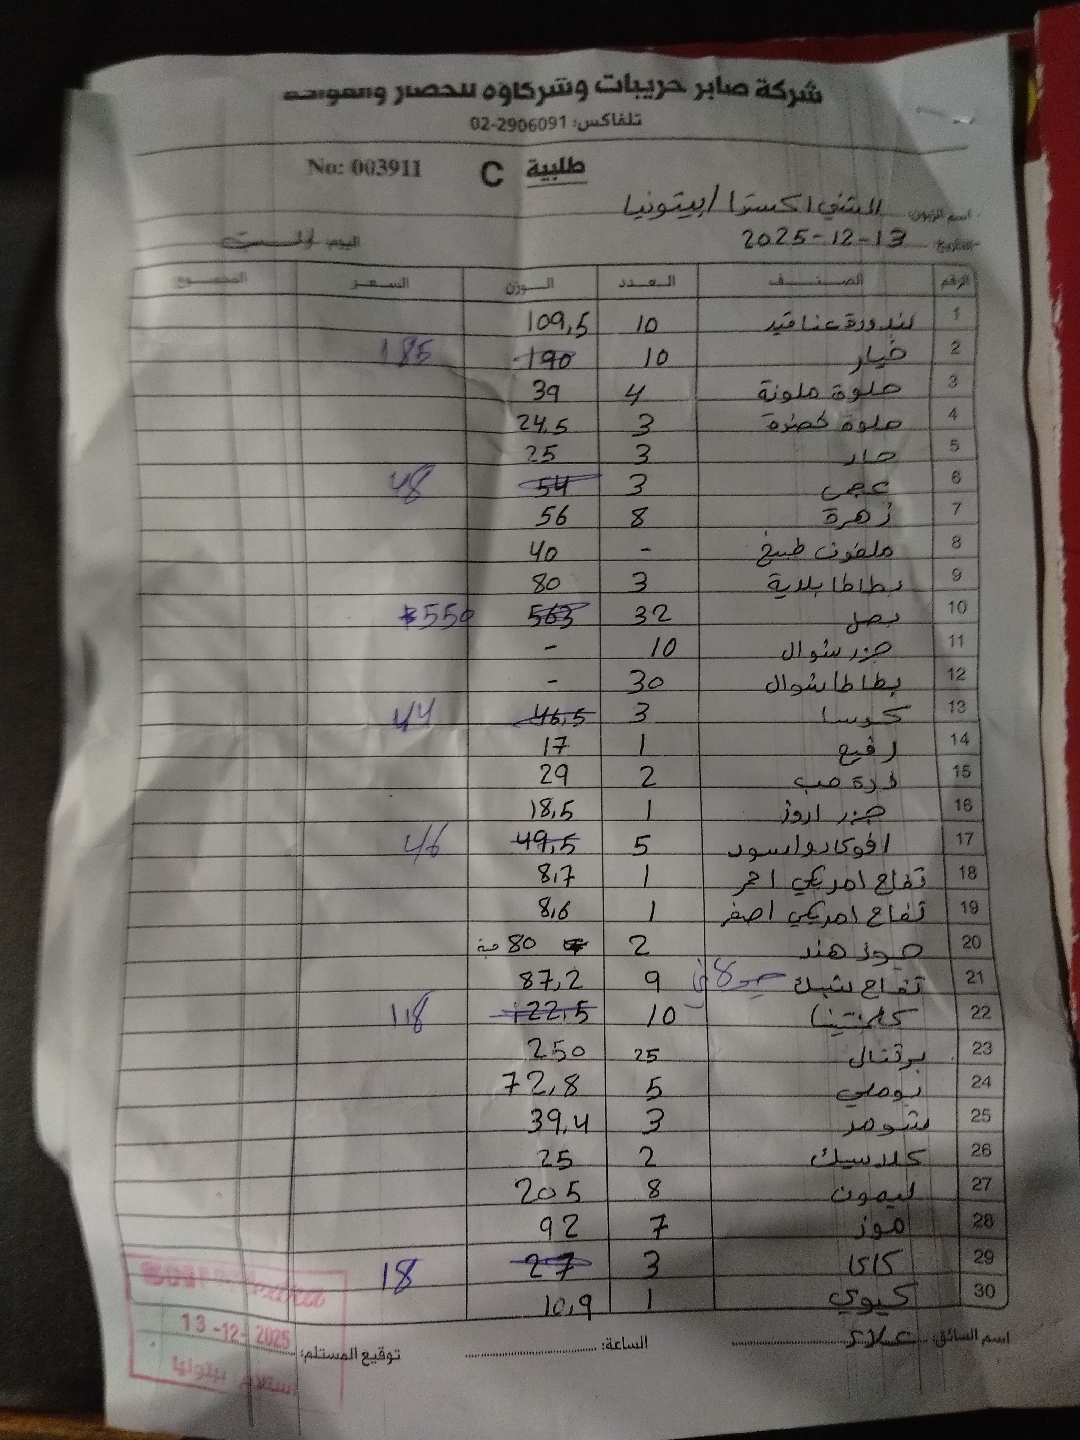 شركة صابر حريبات وشركاؤه للخضار والفواكه
تلفاكس: 02-2906091
طلبية C No: 003911
اسم الزبون: الشني اكسترا / بيتونيا
التاريخ: 13-12-2025 اليوم:
الرقم الصنف العدد الوزن السعر المجموع
1 بندورة عناقيد 10 109,5
2 خيار 10 190 185
3 حلوة ملونة 4 39
4 حلوة خضرة 3 24,5
5 حار 3 25
6 عجمي 3 54 48
7 زهرة 8 56
8 ملفوف طبيخ - 40
9 بطاطا بلادية 3 80
10 بصل 32 563 550
11 جزر شوال 10 -
12 بطاطا شوال 30 -
13 كوسا 3 46,5 44
14 رفيع 1 17
15 ذرة حب 2 29
16 جزر اروز 1 18,5
17 افوكادو اسود 5 49,5 46
18 تفاح امريكي احمر 1 8,7
19 تفاح امريكي اصفر 1 8,6
20 جوز هند 2 80 حبة
21 تفاح شبك 9 87,2
22 كلمنتينا 10 122,5 118
23 برتقال 25 250
24 بوملي 5 72,8
25 شومر 3 39,4
26 كلاسيك 2 25
27 ليمون 8 205
28 موز 7 92
29 كاكا 3 27 18
30 كيوي 1 10,9
اسم السائق: علاء الساعة: توقيع المستلم:
13-12-2025